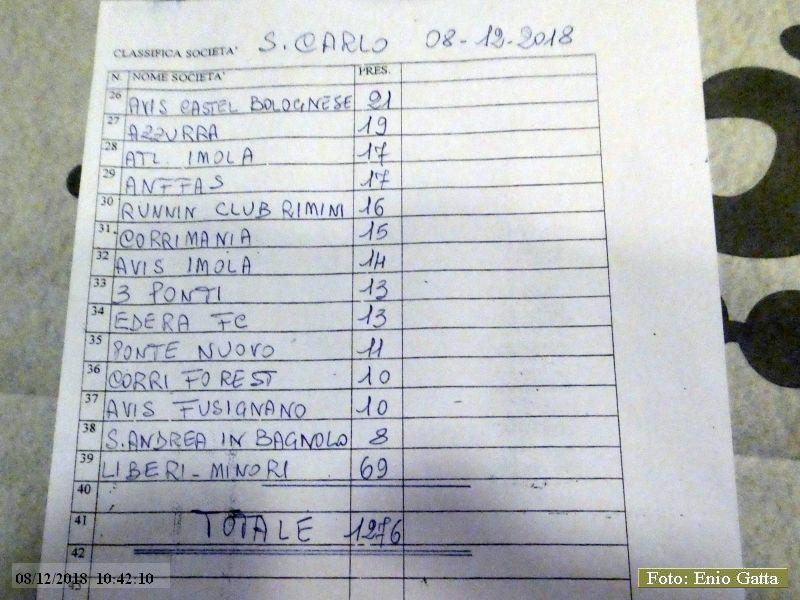 CLASSIFICA SOCIETA' S. CARLO 08-12-2018
N. NOME SOCIETA' PRES.
26 AVIS CASTEL BOLOGNESE 21
27 AZZURRA 19
28 ATL. IMOLA 17
29 ANFFAS 17
30 RUNNIN CLUB RIMINI 16
31 CORRIMANIA 15
32 AVIS IMOLA 14
33 3 PONTI 13
34 EDERA FC 13
35 PONTE NUOVO 11
36 CORRI FOREST 10
37 AVIS FUSIGNANO 10
38 S. ANDREA IN BAGNOLO 8
39 LIBERI - MINORI 69
40
41 TOTALE 1276
42
43
08/12/2018 10:42:10
Foto: Enio Gatta